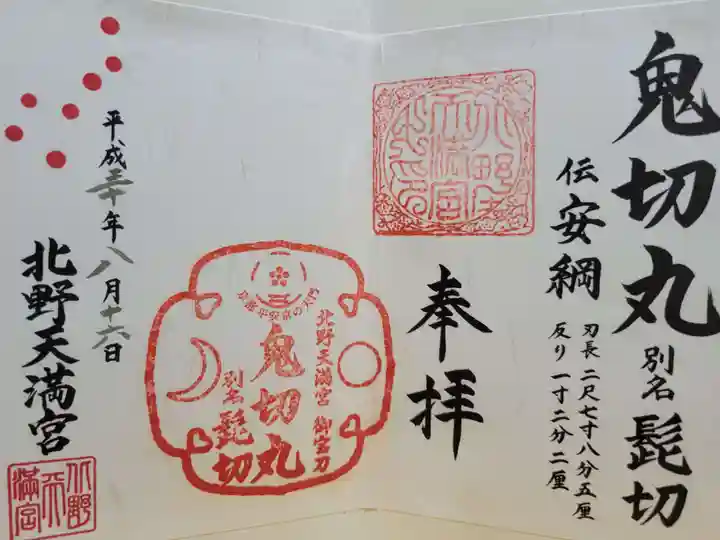 鬼切丸 別名 髭切
伝 安綱
刃長 二尺七寸八分五厘
反り 一寸二分二厘
奉拝
北野天満宮 御宝刀
鬼切丸
別名 髭切
平成三十年八月十六日
北野天満宮
北野天満宮